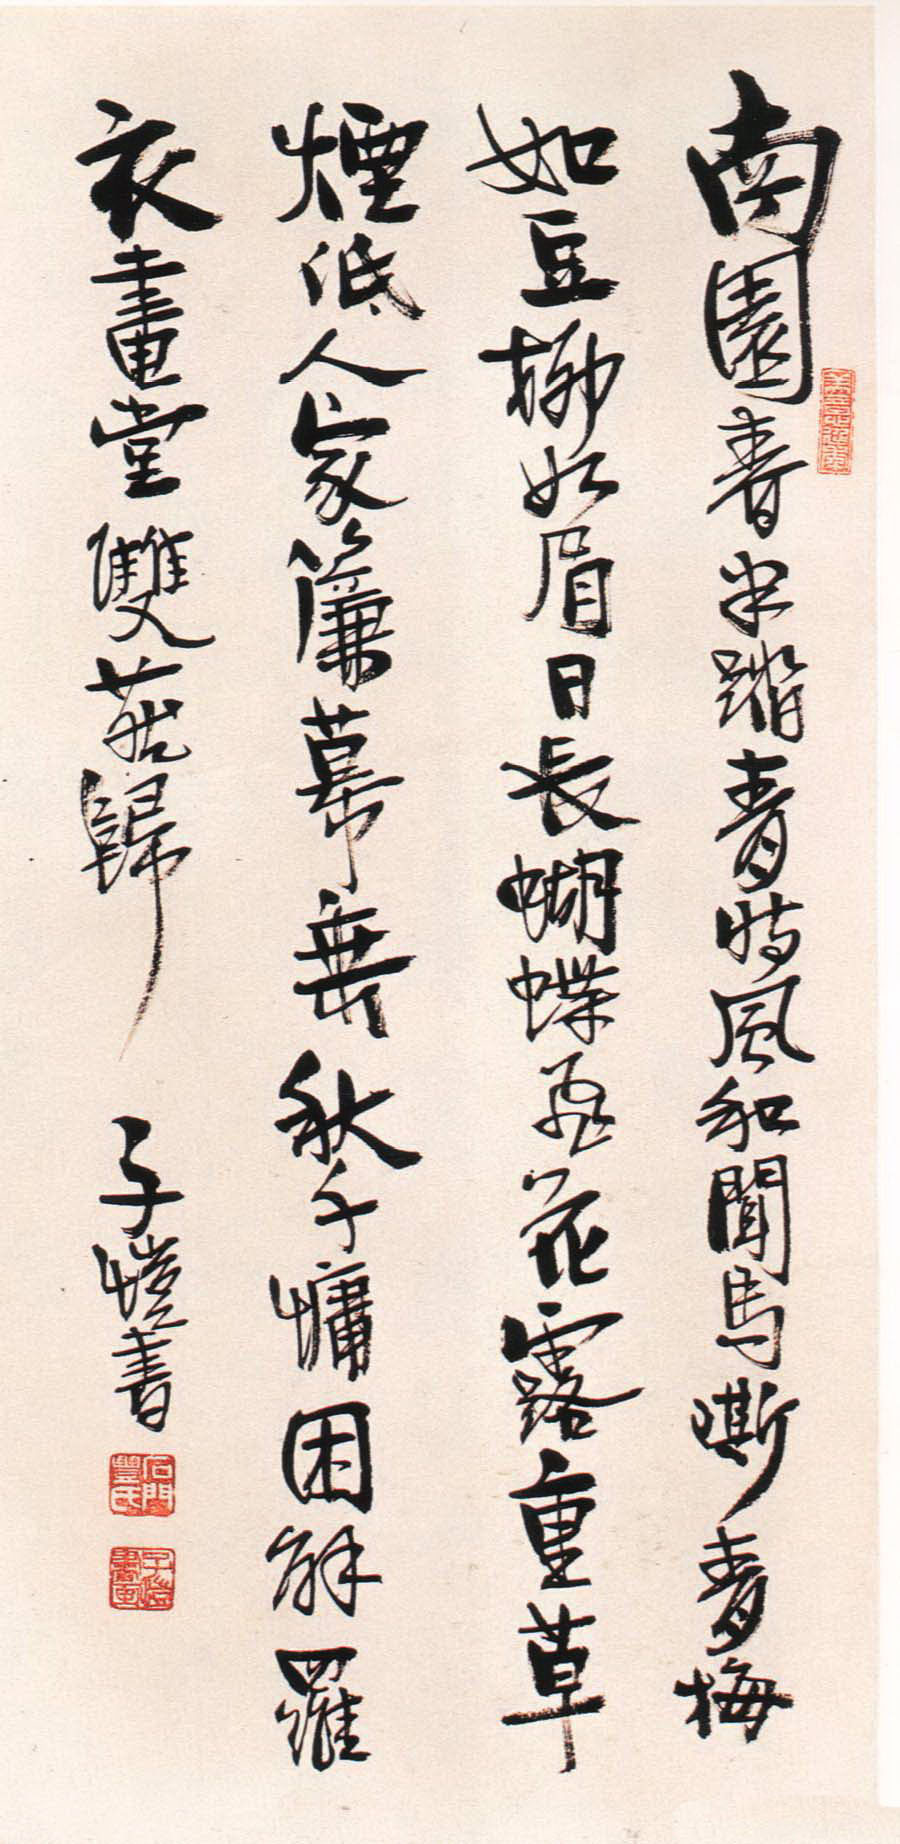 南園春半踏青時風和聞馬嘶青梅
如豆柳如眉日長蝴蝶飛花露重草
煙低人家簾幕垂秋千慵困解羅
衣畫堂雙燕歸
子愷書
石門豐氏
子愷書畫